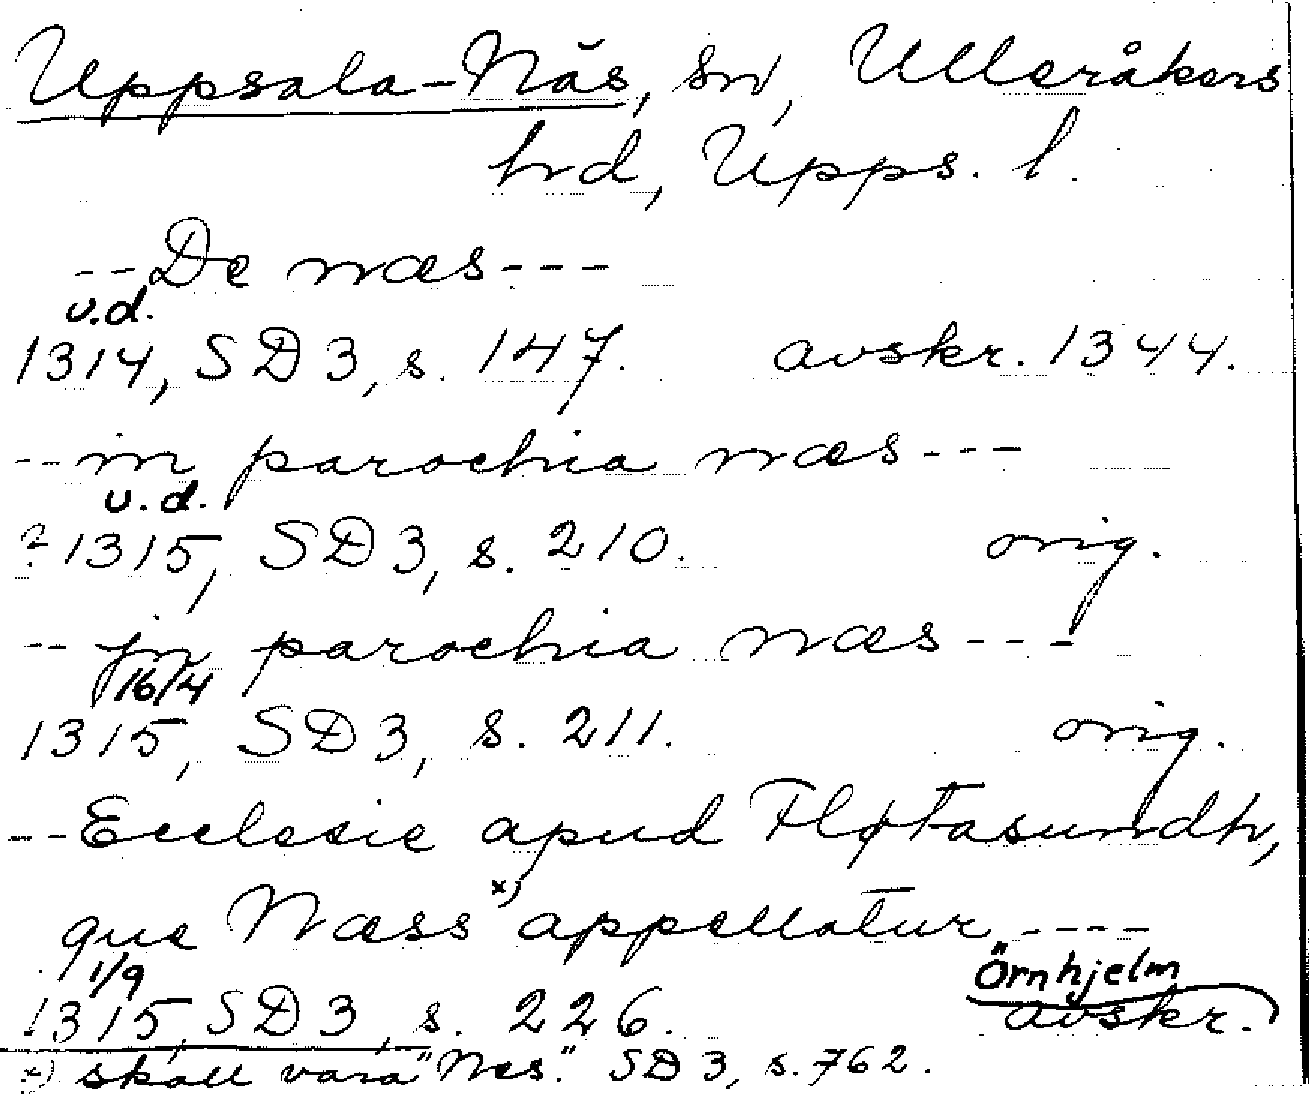 Uppsala-Näs, sn, Ulleråkers
hrd, Upps. l.
--De næs---
u.d.
1314, SD 3, s. 147. avskr. 1344.
--in parochia næs---
u.d.
?1315, SD 3, s. 210. orig.
--jn parochia næs---
16/4
1315, SD 3, s. 211. orig.
--Ecclesie apud Fløtasundh,
que Næss x) appellatur----
1/9 Örnhjelm
1315, SD 3, s. 226. avskr.
x) skall vara "Næs." SD 3, s. 762.